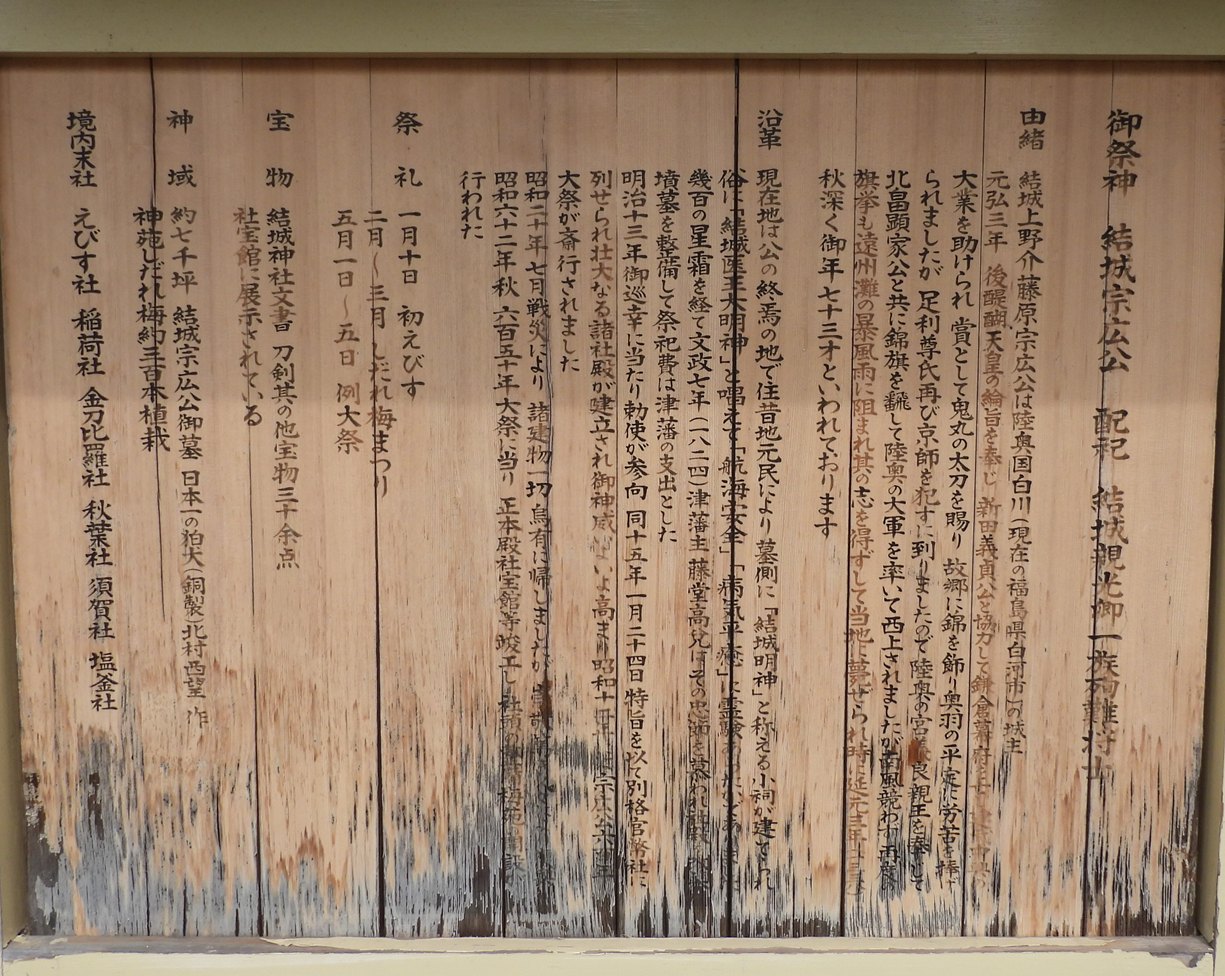 御祭神　結城宗広公　配祀　結城親光卿一族殉難将士
由緒　結城上野介藤原宗広公は陸奥国白川（現在の福島県白河市）の城主
元弘三年　後醍醐天皇の綸旨を奉じ　新田義貞公と協力して鎌倉幕府を
大業を助けられ　賞として鬼丸の太刀を賜り　故郷に錦を飾り奥羽の平定に労苦を捧げ
られましたが　足利尊氏再び京師を犯すに到りましたので　陸奥の宮義良親王を奉じて
北畠顕家公と共に錦旗を飜して陸奥の大軍を率いて西上されましたが南風競わず　再度
旗挙も遠州灘の暴風雨に阻まれ其の志を得ずして当地に薨ぜられ時に延元三年
秋深く御年七十三才といわれております
沿革　現在地は公の終焉の地で往昔地元民により墓側に「結城明神」と称える小祠が建てられ
俗に「結城医王大明神」と唱えて「航海安全」「病気平癒」に霊験
幾百の星霜を経て文政七年（一八二四）津藩主　藤堂高兌はその忠節を慕われ
墳墓を整備して祭祀費は津藩の支出とした
明治十三年御巡幸に当たり勅使が参向　同十五年一月二十四日　特旨を以て別格官幣社に
列せられ壮大なる諸社殿が建立され御神威いよいよ高まり昭和十
大祭が斎行されました
昭和二十年七月戦災により　諸建物一切　烏有に帰しましたが
昭和六十二年秋　六百五十年大祭に当り　正本殿社宝館等竣工し　社頭の
行われた
祭礼　一月十日　初えびす
二月〜三月　しだれ梅まつり
五月一日〜五日　例大祭
宝物　結城神社文書　刀剣其の他宝物三十余点
社宝館に展示されている
神域　約七千坪　結城宗広公御墓　日本一の狛犬（銅製）北村西望　作
神苑しだれ梅約三百本植栽
境内末社　えびす社　稲荷社　金刀比羅社　秋葉社　須賀社　塩釜社